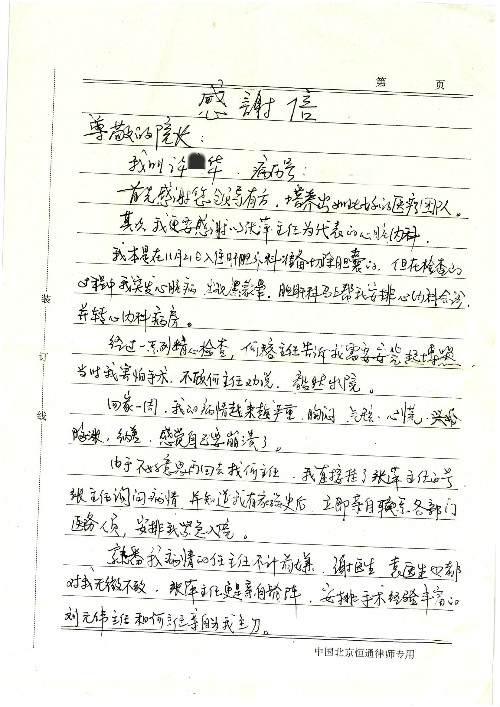 第 页
感謝信
尊敬的院长：
我叫许 华，病历号：
首先感谢您领导有方，培养出如此好的医疗团队。
其次我更要感谢以张萍主任为代表的心脏内科，
我本是在11月21日入住肝胆外科准备切除胆囊的，但在检查的
过程中我突发心脏病 出现黑蒙晕，肝胆科马上帮我安排心内科会诊，
并转心内科病房。
经过一系列精心检查，何榕主任告诉我需要安装起搏器，
当时我害怕手术，不顾何主任劝说，毅然出院。
回家一周，我的病情越来越严重，胸闷 气短、心慌、
感觉自己要崩溃了。
由于不好意思再回去找何主任，我直接挂了张萍主任的号，
张主任询问病情 并知道我有家族史后，立即亲自联系各部门
医务人员，安排我紧急入院。
熟悉我病情的何主任不计前嫌，谢医生 袁医生也都
对我无微不致，张萍主任更是亲自 阵，安排手术经验丰富的
刘元伟主任和何主任亲自为我主刀。
装
订
线
中国北京恒通律师专用